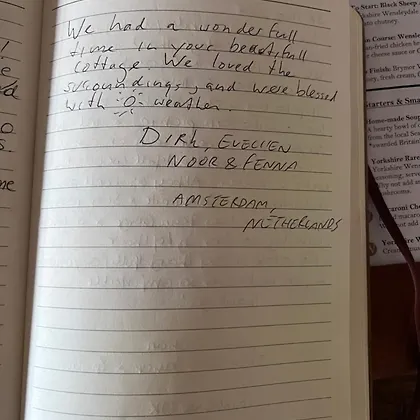 We had a wonderfull
time in your beautifull
cottage. We loved the
surroundings, and were blessed
with weather.
DIRK, EVELIEN
NOOR & FENNA
AMSTERDAM,
NETHERLANDS
To Start: Black Sheep
Wensleydale
chutney.
on Course: Wensley
an-fried chicken
cheese sauce or
Finish: Brymor
fresh cream
Starters & Sma
Home-made Soup
A hearty bowl of
from the local
*awarded Britain
Yorkshire Rare
Yorkshire Wens
seasoning, serve
Why not add
mushrooms
Macaroni Che
macaro
not add
Yorkshire W